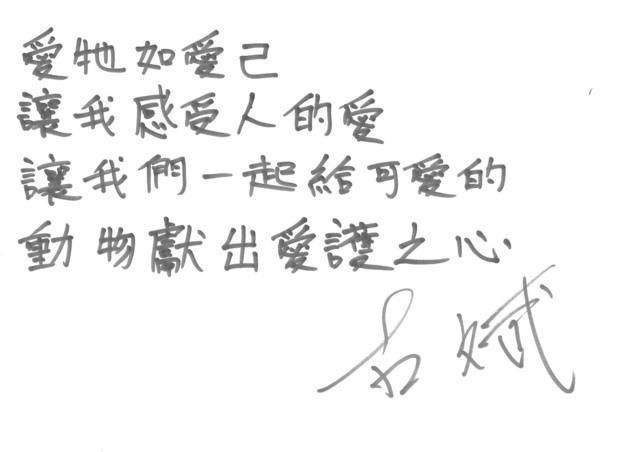 愛牠如愛己
讓我感受人的愛
讓我們一起給可愛的
動物獻出愛護之心